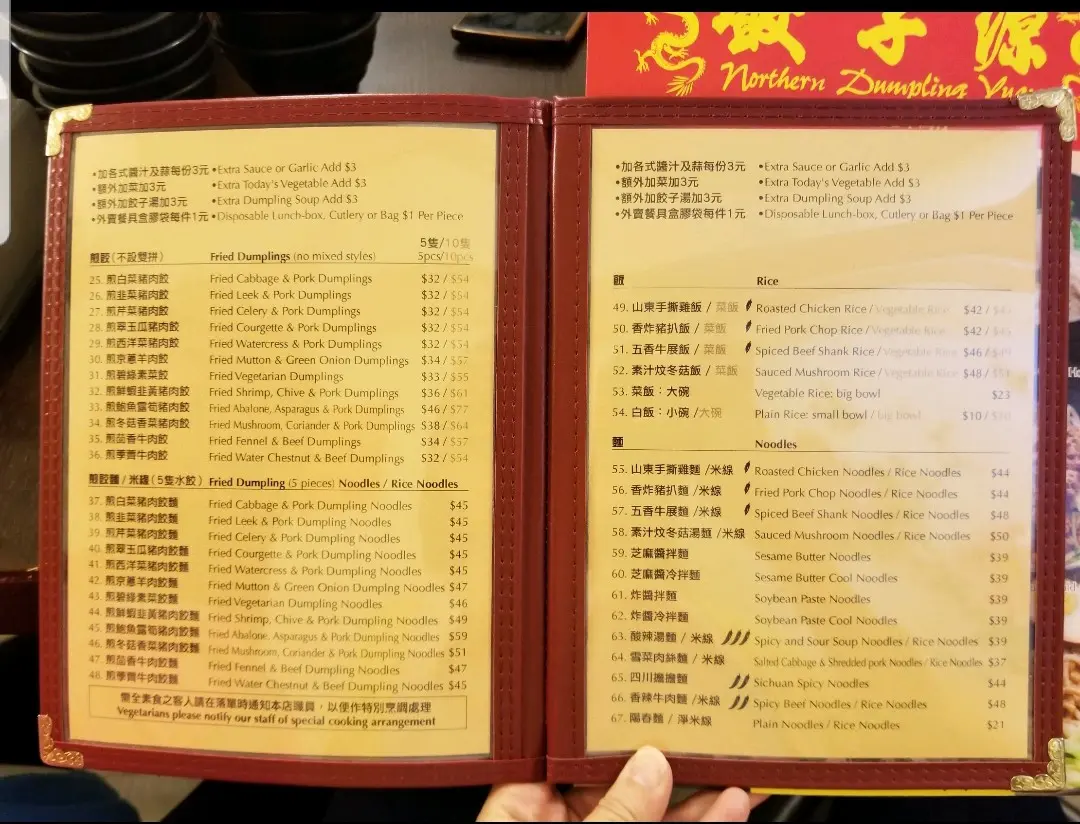 餃子源
Northern Dumpling Yuan
•加各式醬汁及蒜每份3元 •Extra Sauce or Garlic Add $3
•額外加菜加3元 •Extra Today's Vegetable Add $3
•額外加餃子湯加3元 •Extra Dumpling Soup Add $3
•外賣餐具盒膠袋每件1元 •Disposable Lunch-box, Cutlery or Bag $1 Per Piece
5隻/10隻
煎餃(不設雙拼) Fried Dumplings (no mixed styles) 5pcs/10pcs
25. 煎白菜豬肉餃 Fried Cabbage & Pork Dumplings $32 / $54
26. 煎韭菜豬肉餃 Fried Leek & Pork Dumplings $32 / $54
27. 煎芹菜豬肉餃 Fried Celery & Pork Dumplings $32 / $54
28. 煎翠玉瓜豬肉餃 Fried Courgette & Pork Dumplings $32 / $54
29. 煎西洋菜豬肉餃 Fried Watercress & Pork Dumplings $32 / $54
30. 煎京蔥羊肉餃 Fried Mutton & Green Onion Dumplings $34 / $57
31. 煎碧綠素菜餃 Fried Vegetarian Dumplings $33 / $55
32. 煎鮮蝦韭黃豬肉餃 Fried Shrimp, Chive & Pork Dumplings $36 / $61
33. 煎鮑魚露筍豬肉餃 Fried Abalone, Asparagus & Pork Dumplings $46 / $77
34. 煎冬菇香菜豬肉餃 Fried Mushroom, Coriander & Pork Dumplings $38 / $64
35. 煎茴香牛肉餃 Fried Fennel & Beef Dumplings $34 / $57
36. 煎馬蹄牛肉餃 Fried Water Chestnut & Beef Dumplings $32 / $54
煎餃麵/米線(5隻水餃) Fried Dumpling (5 pieces) Noodles / Rice Noodles
37. 煎白菜豬肉餃麵 Fried Cabbage & Pork Dumpling Noodles $45
38. 煎韭菜豬肉餃麵 Fried Leek & Pork Dumpling Noodles $45
39. 煎芹菜豬肉餃麵 Fried Celery & Pork Dumpling Noodles $45
40. 煎翠玉瓜豬肉餃麵 Fried Courgette & Pork Dumpling Noodles $45
41. 煎西洋菜豬肉餃麵 Fried Watercress & Pork Dumpling Noodles $45
42. 煎京蔥羊肉餃麵 Fried Mutton & Green Onion Dumpling Noodles $47
43. 煎碧綠素菜餃麵 Fried Vegetarian Dumpling Noodles $46
44. 煎鮮蝦韭黃豬肉餃麵 Fried Shrimp, Chive & Pork Dumpling Noodles $49
45. 煎鮑魚露筍豬肉餃麵 Fried Abalone, Asparagus & Pork Dumpling Noodles $59
46. 煎冬菇香菜豬肉餃麵 Fried Mushroom, Coriander & Pork Dumpling Noodles $51
47. 煎茴香牛肉餃麵 Fried Fennel & Beef Dumpling Noodles $47
48. 煎馬蹄牛肉餃麵 Fried Water Chestnut & Beef Dumpling Noodles $45
需全素食之客人請在落單時通知本店職員，以便作特別烹調處理
Vegetarians please notify our staff of special cooking arrangement
•加各式醬汁及蒜每份3元 •Extra Sauce or Garlic Add $3
•額外加菜加3元 •Extra Today's Vegetable Add $3
•額外加餃子湯加3元 •Extra Dumpling Soup Add $3
•外賣餐具盒膠袋每件1元 •Disposable Lunch-box, Cutlery or Bag $1 Per Piece
飯 Rice
49. 山東手撕雞飯 / 菜飯 Roasted Chicken Rice / Vegetable Rice $42 /
50. 香炸豬扒飯 / 菜飯 Fried Pork Chop Rice / Vegetable Rice $42 /
51. 五香牛展飯 / 菜飯 Spiced Beef Shank Rice / Vegetable Rice $46 /
52. 素汁炆冬菇飯 / 菜飯 Sauced Mushroom Rice / Vegetable Rice $48 /
53. 菜飯：大碗 Vegetable Rice: big bowl $23
54. 白飯：小碗 /大碗 Plain Rice: small bowl / big bowl $10 /
麵 Noodles
55. 山東手撕雞麵 /米線 Roasted Chicken Noodles / Rice Noodles $44
56. 香炸豬扒麵 /米線 Fried Pork Chop Noodles / Rice Noodles $44
57. 五香牛展麵 /米線 Spiced Beef Shank Noodles / Rice Noodles $48
58. 素汁炆冬菇湯麵 /米線 Sauced Mushroom Noodles / Rice Noodles $50
59. 芝麻醬拌麵 Sesame Butter Noodles $39
60. 芝麻醬冷拌麵 Sesame Butter Cool Noodles $39
61. 炸醬拌麵 Soybean Paste Noodles $39
62. 炸醬冷拌麵 Soybean Paste Cool Noodles $39
63. 酸辣湯麵 / 米線 Spicy and Sour Soup Noodles / Rice Noodles $39
64. 雪菜肉絲麵 / 米線 Salted Cabbage & Shredded pork Noodles / Rice Noodles $37
65. 四川擔擔麵 Sichuan Spicy Noodles $44
66. 香辣牛肉麵 /米線 Spicy Beef Noodles / Rice Noodles $48
67. 陽春麵 / 淨米線 Plain Noodles / Rice Noodles $21